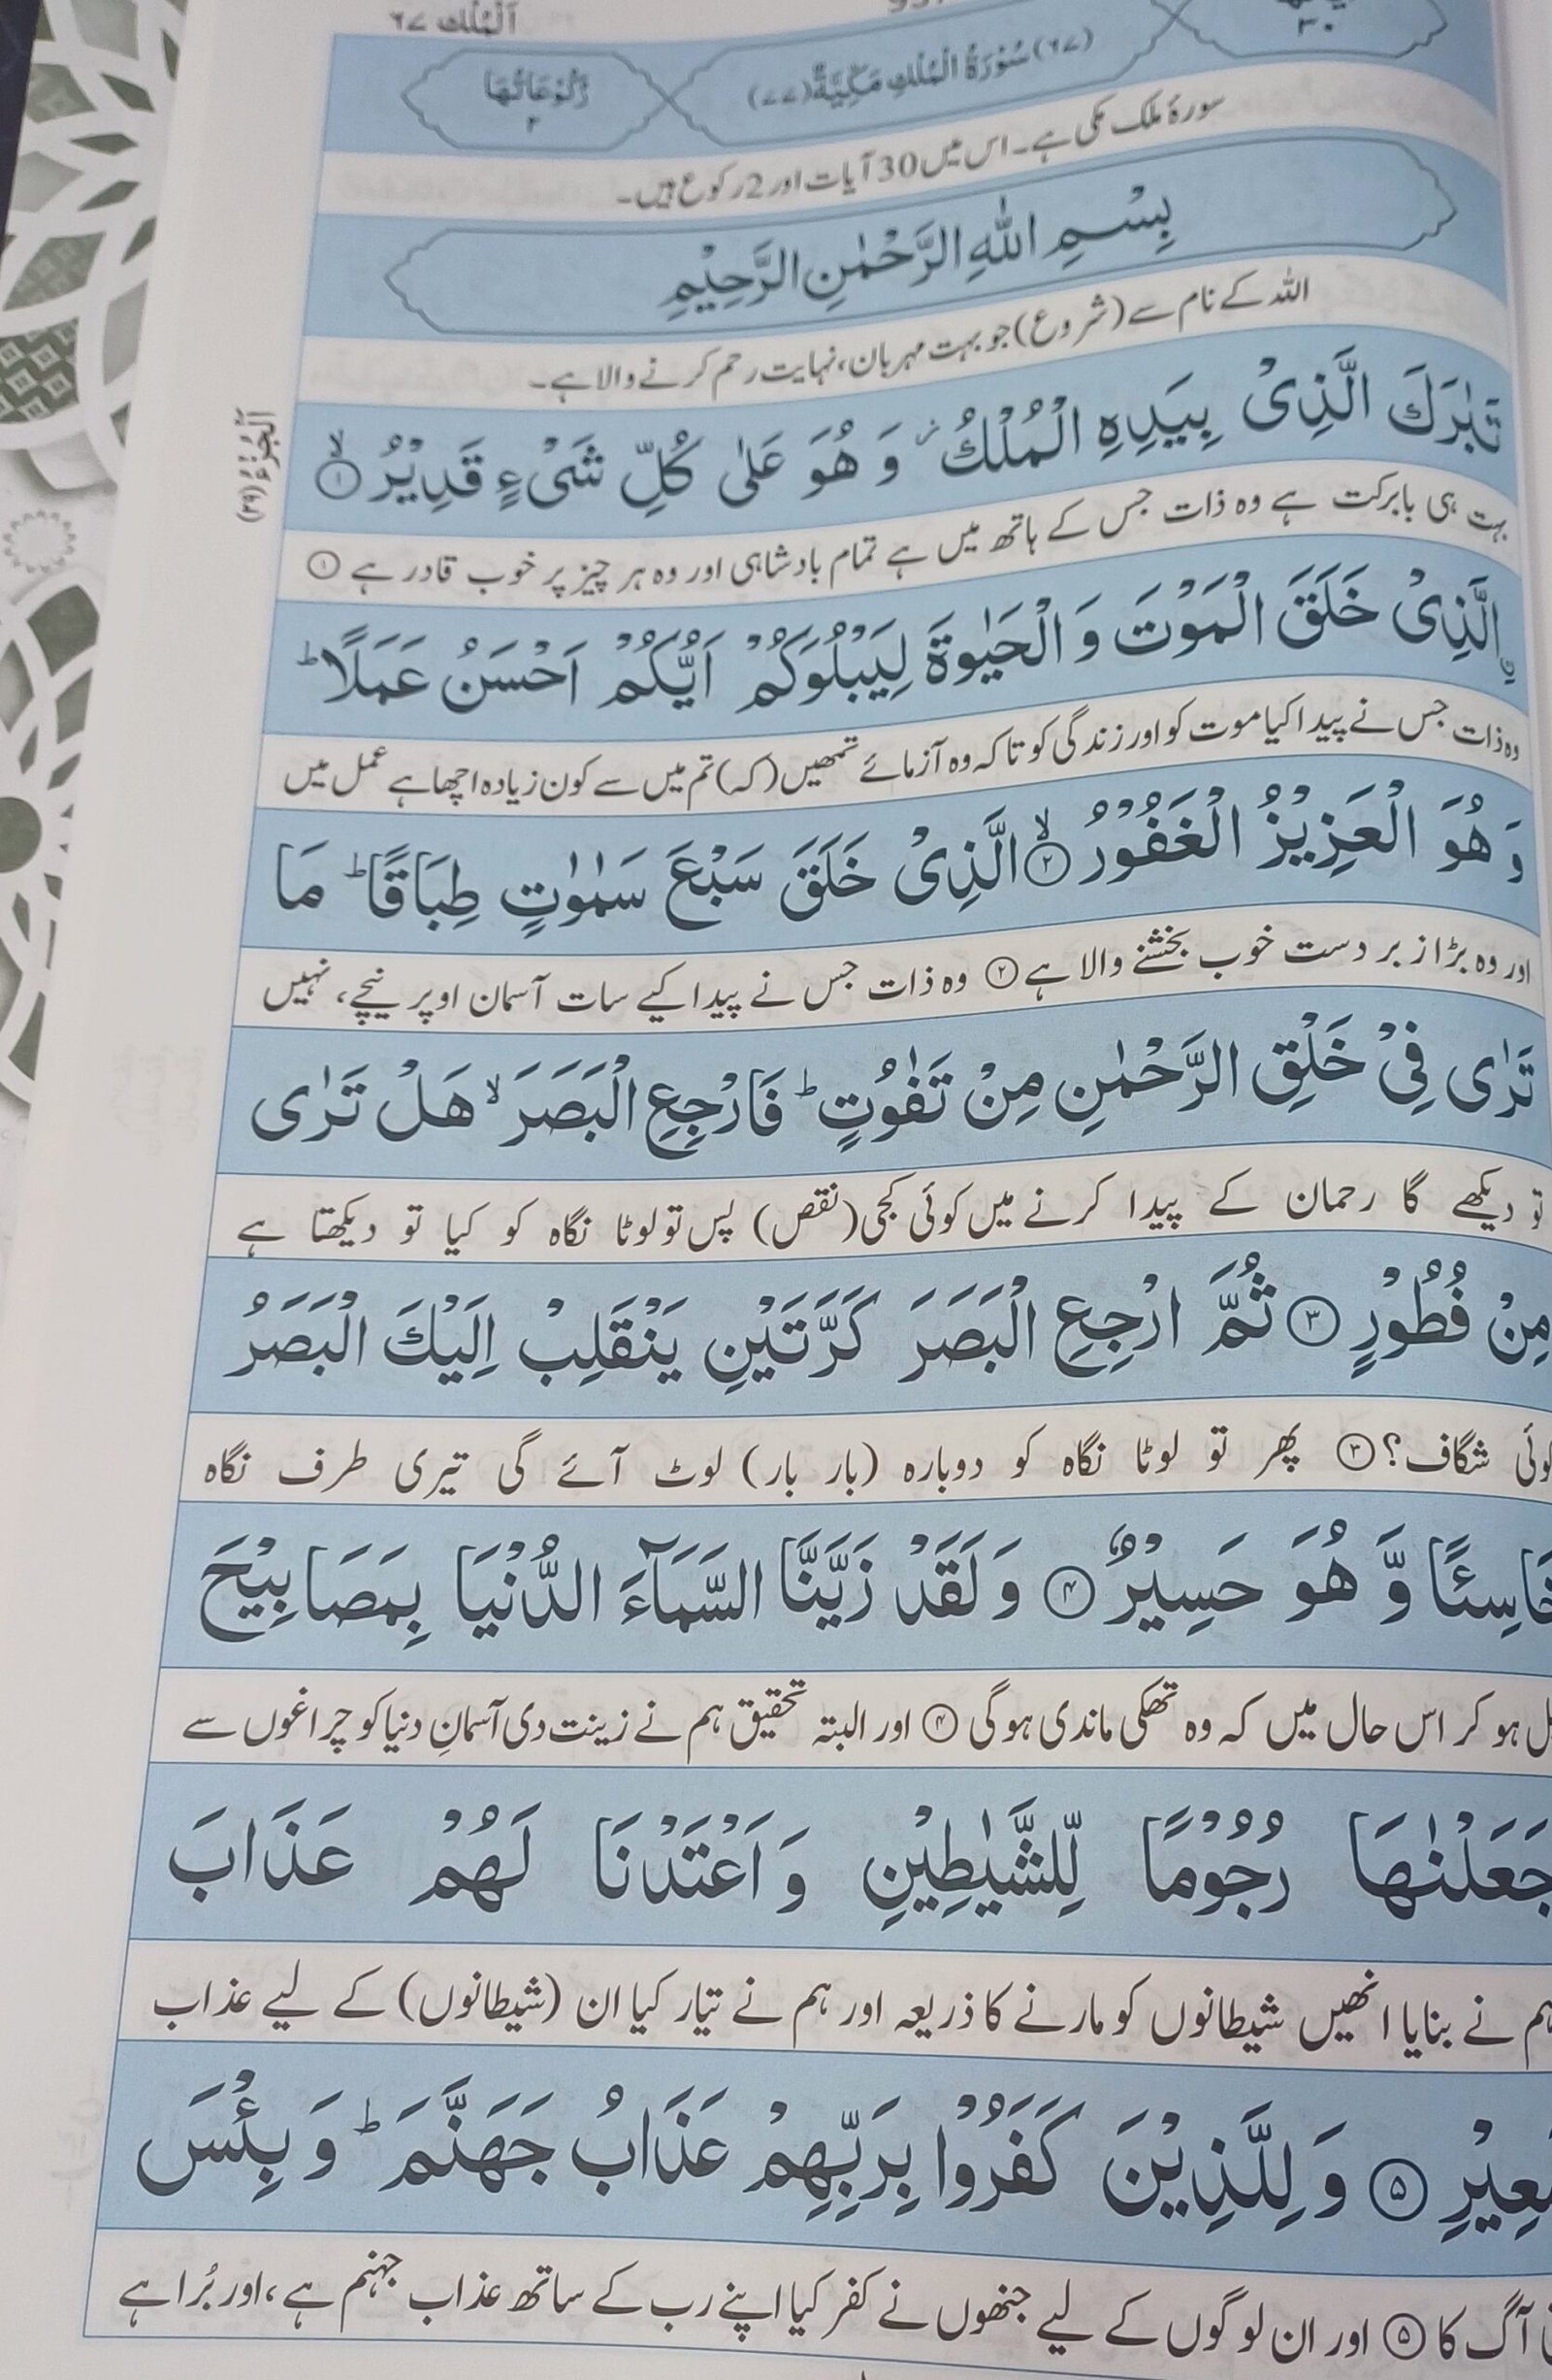 اَلْمُلْك ٦٧
٣٠
(٦٧) سُوْرَةُ الْمُلْكِ مَكِّيَّةٌ (٧٧)
رُكُوْعَاتُهَا
٢
سورۂ ملک مکی ہے۔ اس میں 30 آیات اور 2 رکوع ہیں۔
بِسْمِ اللّٰهِ الرَّحْمٰنِ الرَّحِيْمِ
اللہ کے نام سے (شروع) جو بہت مہربان، نہایت رحم کرنے والا ہے۔
اَلْجُزْءُ (٢٩)
تَبٰرَكَ الَّذِیْ بِيَدِهِ الْمُلْكُ ؗ وَ هُوَ عَلٰى كُلِّ شَیْءٍ قَدِيْرُ ۙ ①
بہت ہی بابرکت ہے وہ ذات جس کے ہاتھ میں ہے تمام بادشاہی اور وہ ہر چیز پر خوب قادر ہے ①
اِ۟لَّذِیْ خَلَقَ الْمَوْتَ وَ الْحَيٰوةَ لِيَبْلُوَكُمْ اَيُّكُمْ اَحْسَنُ عَمَلًا ؕ
وہ ذات جس نے پیدا کیا موت کو اور زندگی کو تاکہ وہ آزمائے تمھیں (کہ) تم میں سے کون زیادہ اچھا ہے عمل میں
وَ هُوَ الْعَزِيْزُ الْغَفُوْرُ ۙ ② الَّذِیْ خَلَقَ سَبْعَ سَمٰوٰتٍ طِبَاقًا ؕ مَا
اور وہ بڑا زبردست خوب بخشنے والا ہے ② وہ ذات جس نے پیدا کیے سات آسمان اوپر نیچے، نہیں
تَرٰى فِیْ خَلْقِ الرَّحْمٰنِ مِنْ تَفٰوُتٍ ؕ فَارْجِعِ الْبَصَرَ ۙ هَلْ تَرٰى
تو دیکھے گا رحمان کے پیدا کرنے میں کوئی کجی (نقص) پس تو لوٹا نگاہ کو کیا تو دیکھتا ہے
مِنْ فُطُوْرٍ ③ ثُمَّ ارْجِعِ الْبَصَرَ كَرَّتَيْنِ يَنْقَلِبْ اِلَيْكَ الْبَصَرُ
کوئی شگاف؟ ③ پھر تو لوٹا نگاہ کو دوبارہ (بار بار) لوٹ آئے گی تیری طرف نگاہ
خَاسِئًا وَّ هُوَ حَسِيْرٌ ④ وَ لَقَدْ زَيَّنَّا السَّمَآءَ الدُّنْيَا بِمَصَابِيْحَ
ہو کر اس حال میں کہ وہ تھکی ماندی ہوگی ④ اور البتہ تحقیق ہم نے زینت دی آسمانِ دنیا کو چراغوں سے
جَعَلْنٰهَا رُجُوْمًا لِّلشَّيٰطِيْنِ وَ اَعْتَدْنَا لَهُمْ عَذَابَ
ہم نے بنایا انھیں شیطانوں کو مارنے کا ذریعہ اور ہم نے تیار کیا ان (شیطانوں) کے لیے عذاب
⑤ وَ لِلَّذِيْنَ كَفَرُوْا بِرَبِّهِمْ عَذَابُ جَهَنَّمَ ؕ وَ بِئْسَ
آگ کا ⑤ اور ان لوگوں کے لیے جنھوں نے کفر کیا اپنے رب کے ساتھ عذاب جہنم ہے، اور بُرا ہے